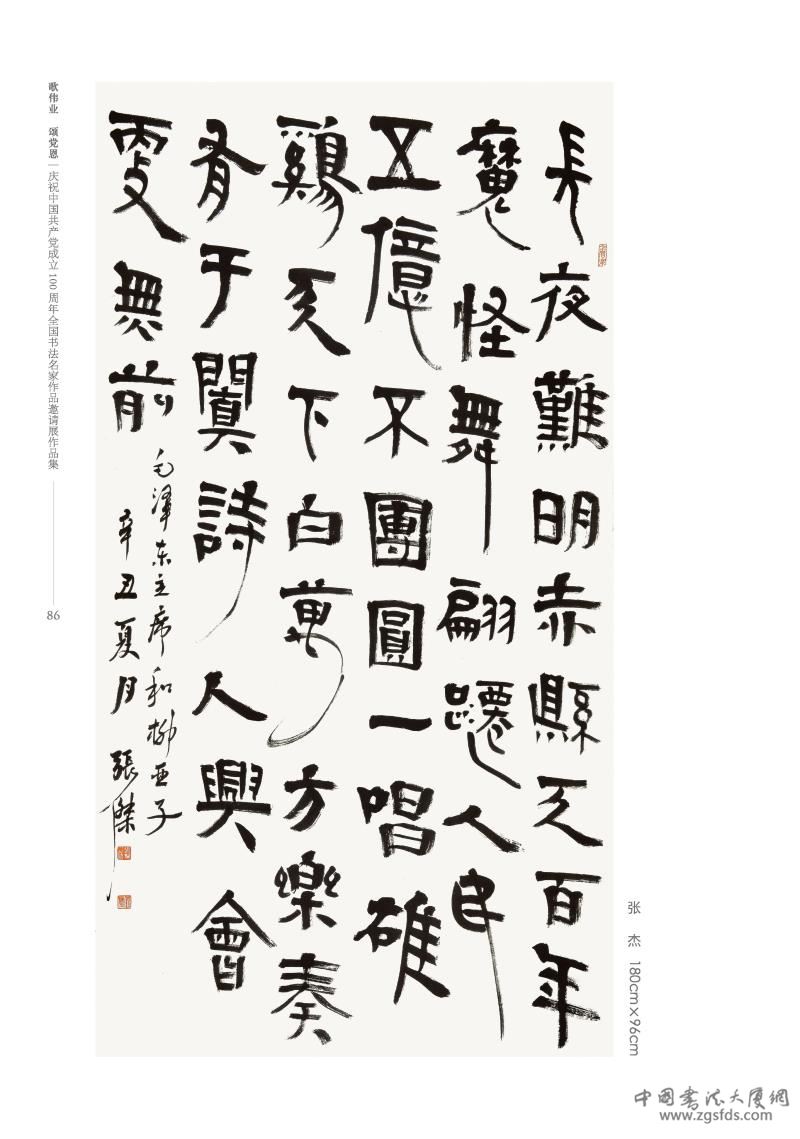 長夜難明赤縣天百年
魔怪舞翩躚人民
五億不團圓一唱雄
鷄天下白萬方樂奏
有于闐詩人興會
更無前
毛澤东主席和柳亚子
辛丑夏月 張傑
张 杰 180cm×96cm
歌伟业 颂党恩 | 庆祝中国共产党成立100周年全国书法名家作品邀请展作品集
86
中国书法大厦網
www.zgsfds.com